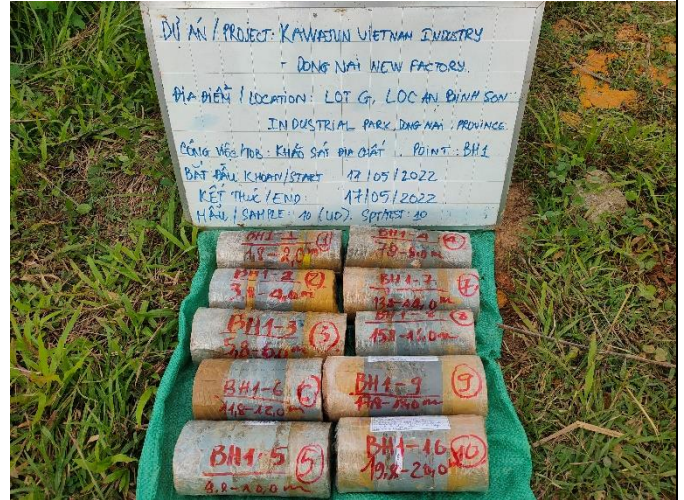 DỰ ÁN / PROJECT: KAWAJUN VIETNAM INDUSTRY
- DONG NAI NEW FACTORY.
ĐỊA ĐIỂM / LOCATION: LOT G, LOC AN BINH SON
INDUSTRIAL PARK, DONG NAI PROVINCE
CÔNG VIỆC/JOB: KHẢO SÁT ĐỊA CHẤT. POINT: BH1
BẮT ĐẦU KHOAN/START 17/05/2022
KẾT THÚC / END 17/05/2022
MẪU / SAMPLE: 10 (UD). SPT/TEST: 10
BH1-1 1
1,8-2,0m
BH1-4 4
7,8-8,0m
BH1-2 2
3,8-4,0m
BH1-7 7
13,8-14,0m
BH1-3 3
5,8-6,0m
BH1-8 8
15,8-16,0m
BH1-6 6
11,8-12,0m
BH1-9 9
17,8-18,0m
BH1-5 5
9,8-10,0m
BH1-10 10
19,8-20,0m